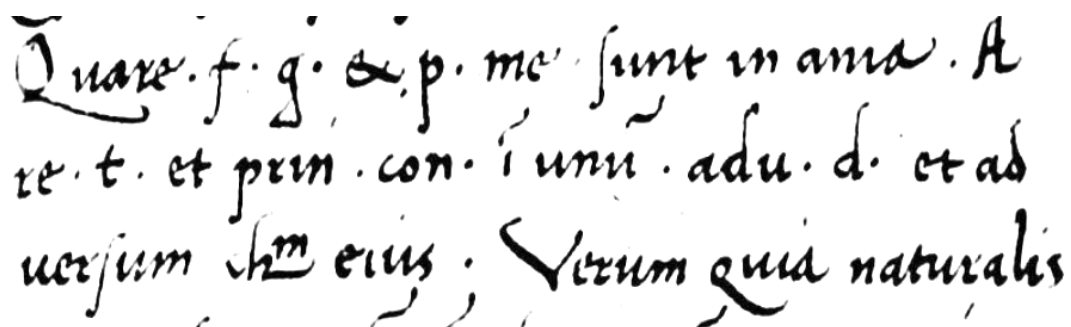 Quare · f · g · & · p · me · sunt in ania · A
re · t · et prin · con · ī unū · adu · d · et ad
versum chm eius · Verum quia naturalis